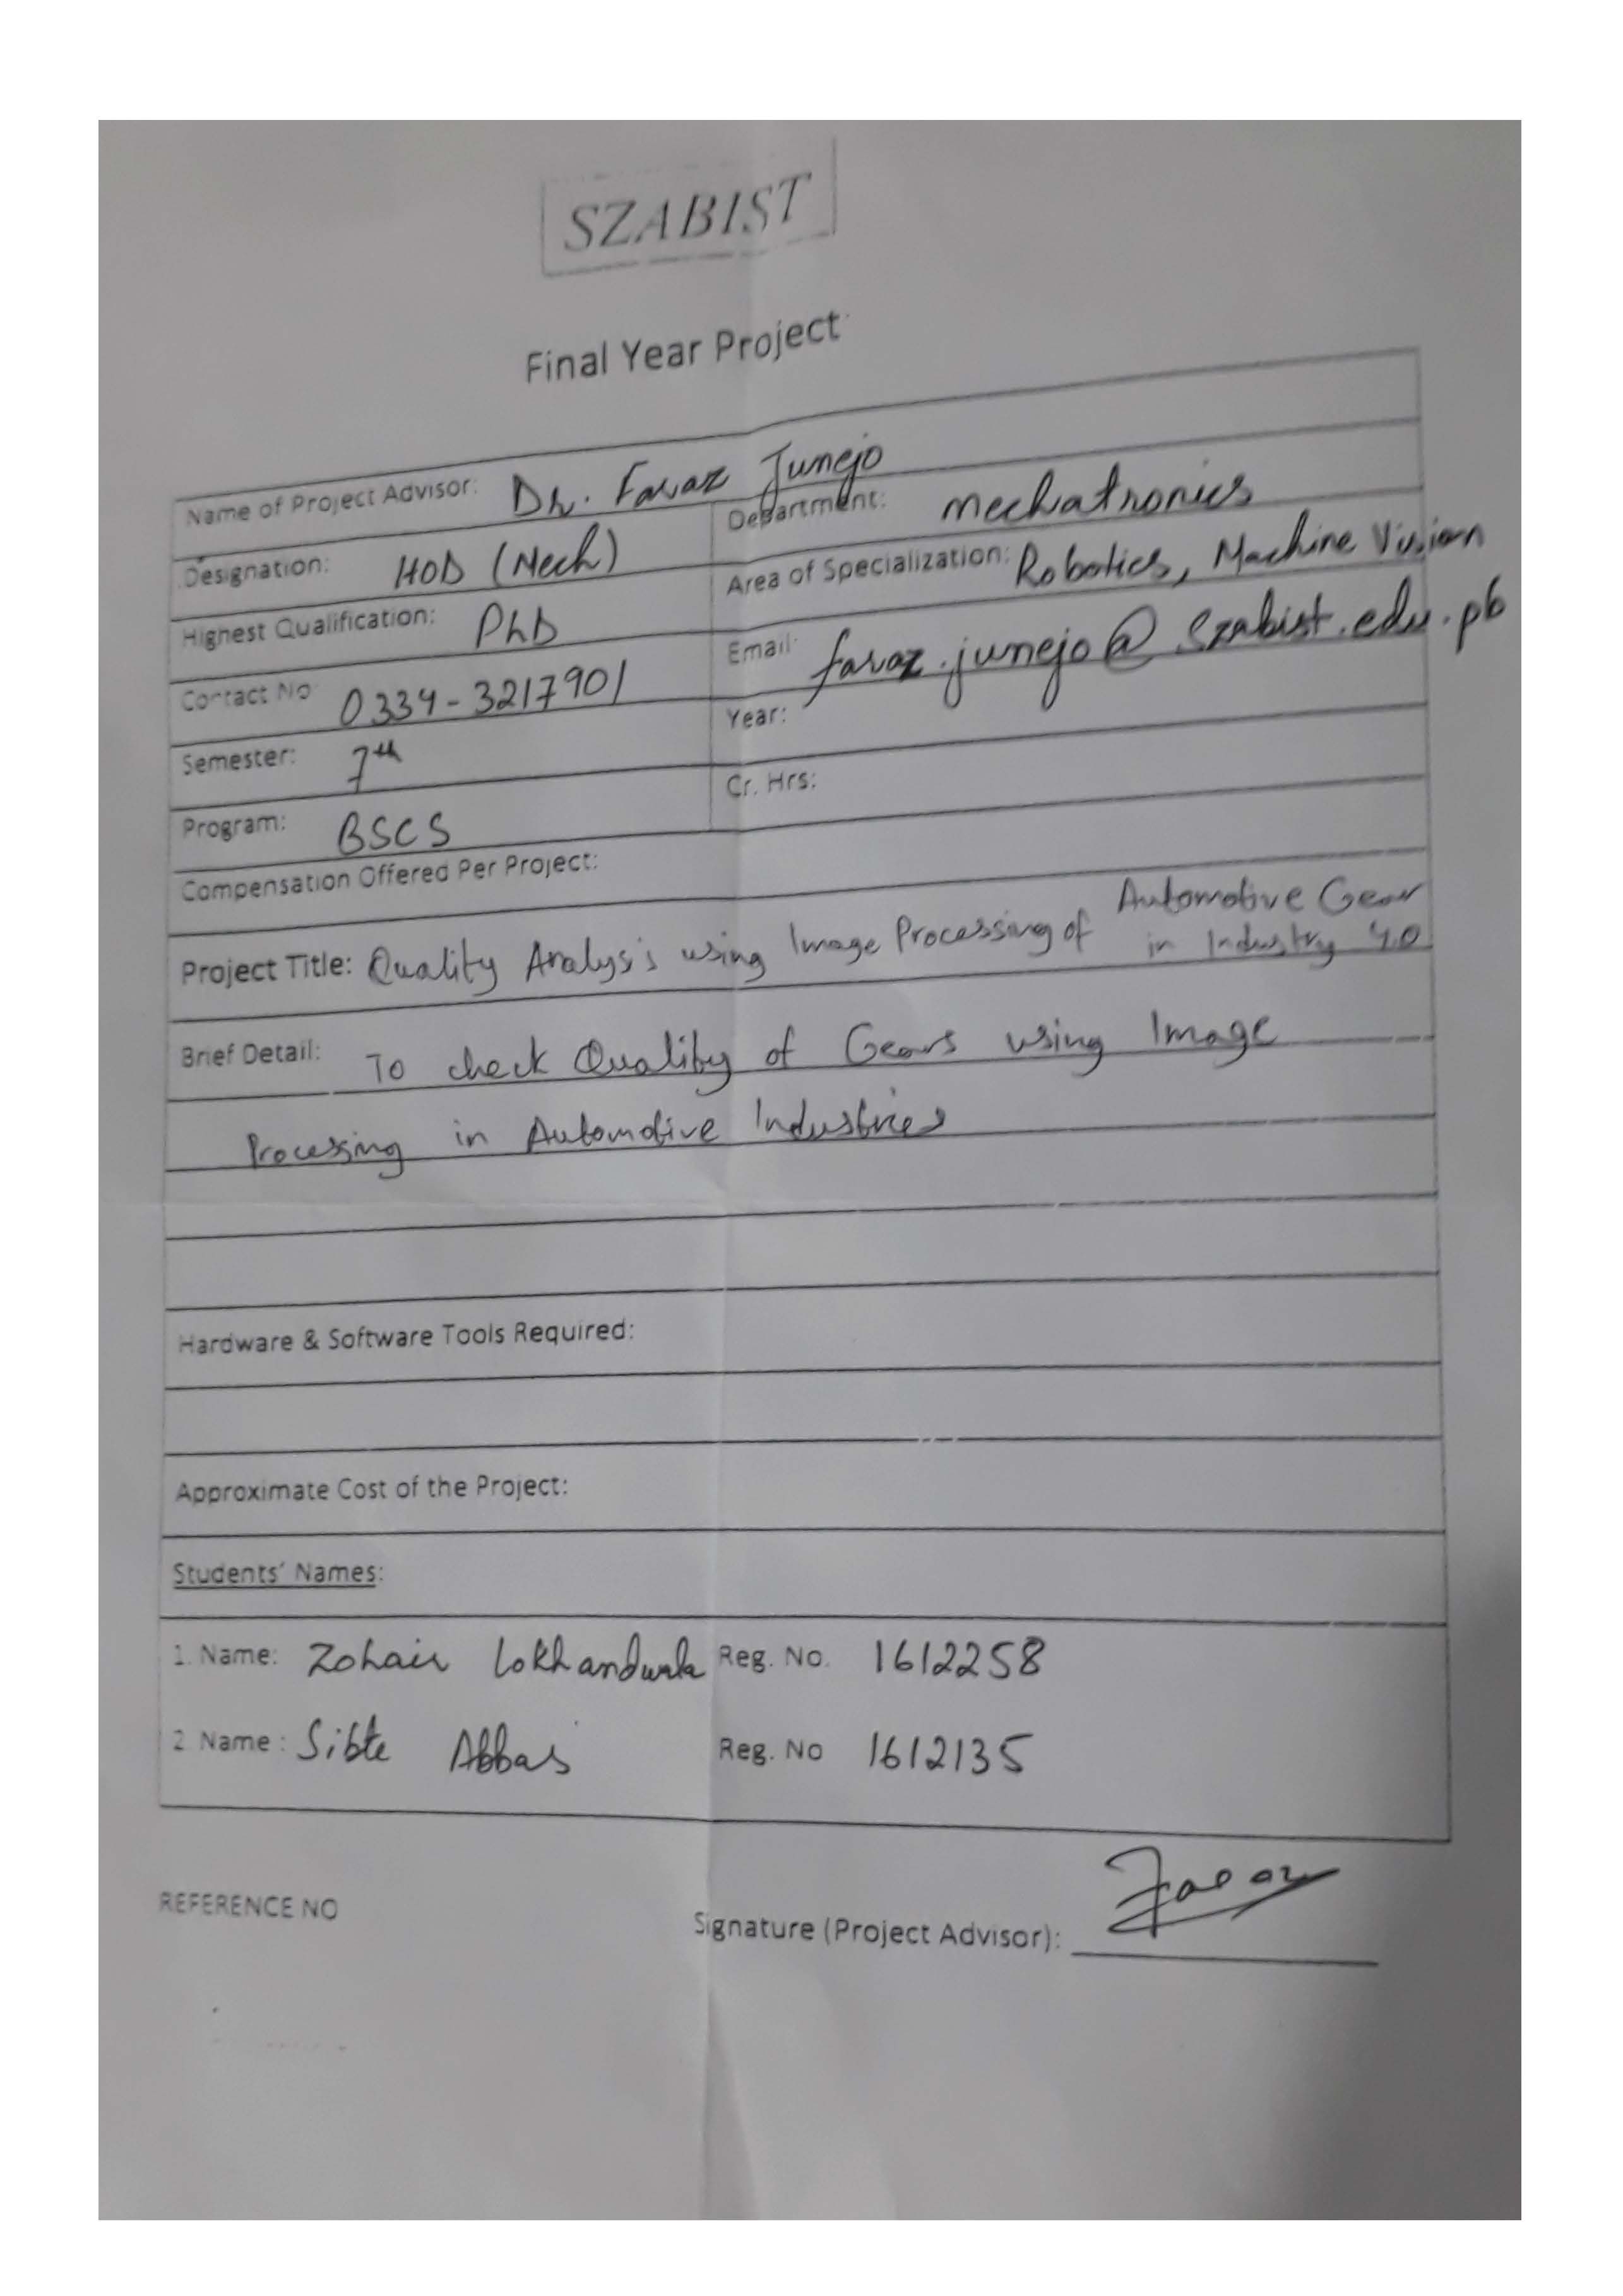 SZABIST
Final Year Project
Name of Project Advisor: Dr. Faraz Junejo
Designation: HOD (Mech) Department: Mechatronics
Highest Qualification: PhD Area of Specialization: Robotics, Machine Vision
Contact No 0334-3217901 Email: faraz.junejo@szabist.edu.pk
Semester: 7th Year:
Program: BSCS Cr. Hrs:
Compensation Offered Per Project:
Project Title: Quality Analysis using Image Processing of Automotive Gear
in Industry 4.0
Brief Detail: To check Quality of Gears using Image
Processing in Automotive Industries
Hardware & Software Tools Required:
Approximate Cost of the Project:
Students' Names:
1. Name: Zohair Lokhandwala Reg. No. 1612258
2 Name : Sibte Abbas Reg. No 1612135
REFERENCE NO
Signature (Project Advisor): Faraz